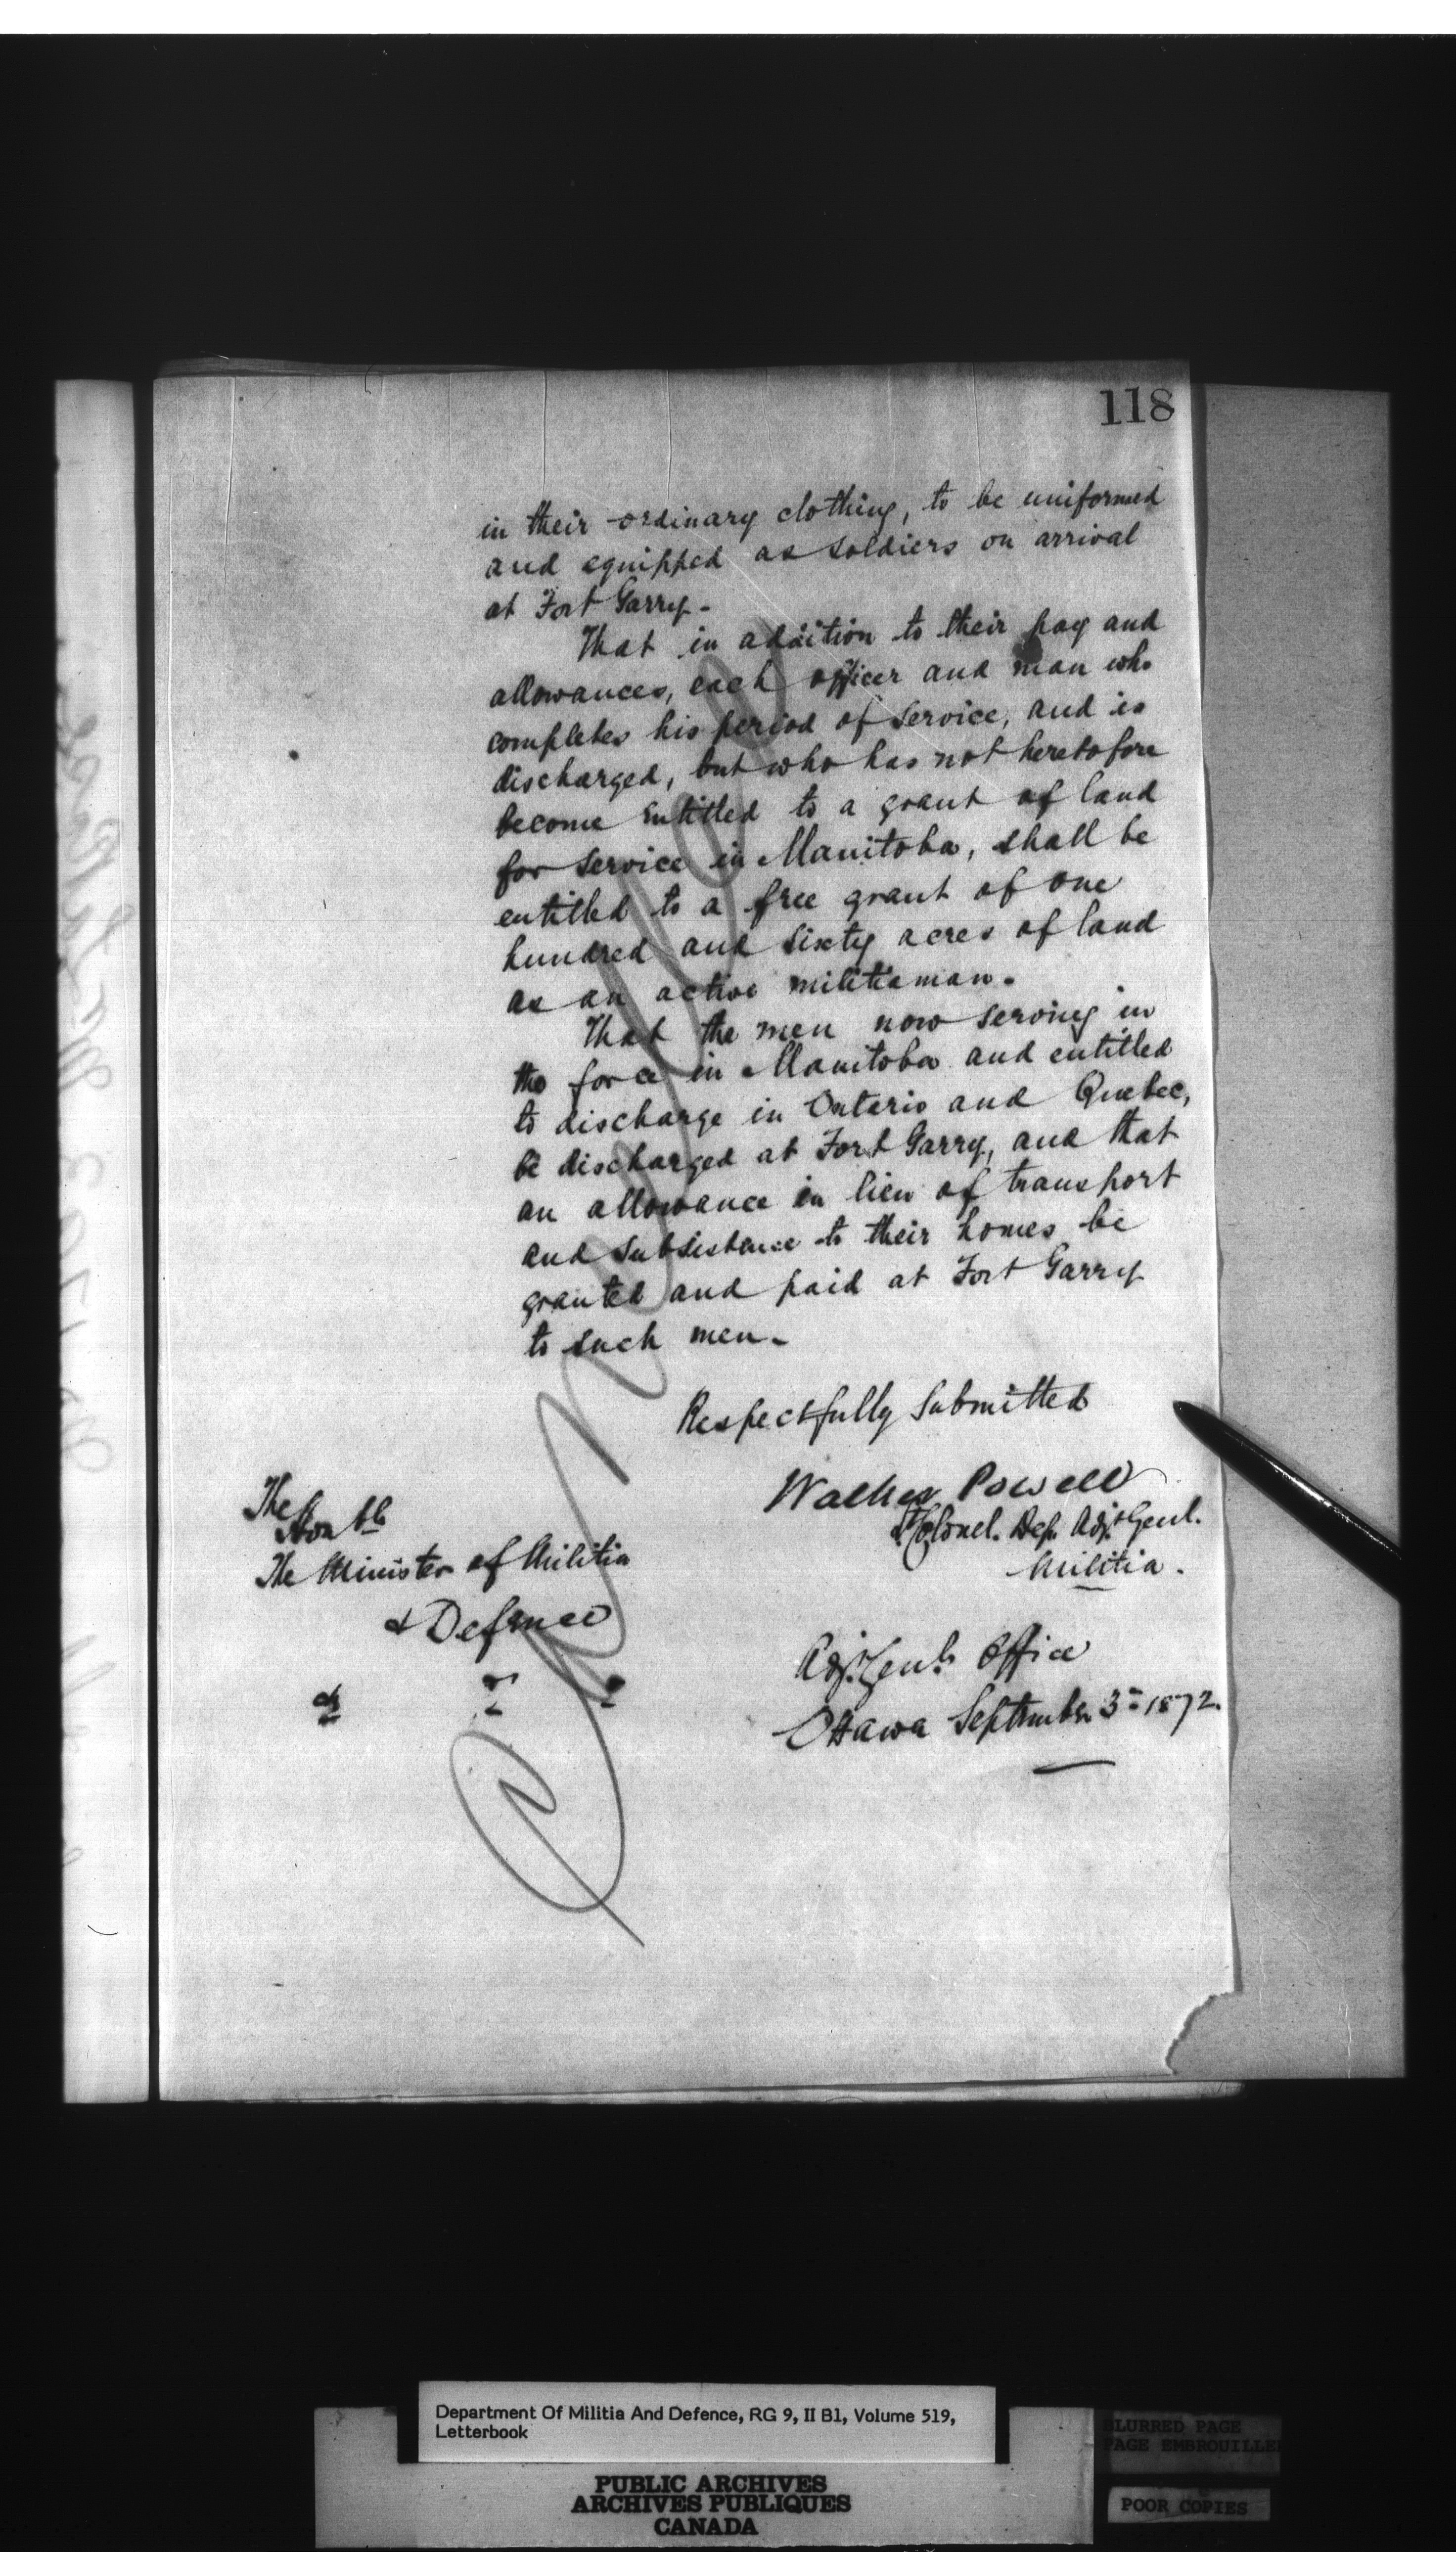 118
in their ordinary clothing, to be uniformed
and equipped as soldiers on arrival
at Fort Garry-
That in addition to their pay and
allowances, each officer and man who
completes his period of service, and is
discharged, but who has not heretofore
become entitled to a grant of land
for service in Manitoba, shall be
entitled to a free grant of one
hundred and sixty acres of land
as an active militiaman.
That the men now serving in
the force in Manitoba and entitled
to discharge in Ontario and Quebec,
be discharged at Fort Garry, and that
an allowance in lieu of transport
and subsistence to their homes be
granted and paid at Fort Garry
to such men-
Respectfully Submitted
Walker Powell
Lt Colonel. Dep. Adjt Genl.
Militia.
The
Honble
The Minister of Militia
& Defence
Adjt. Genl's Office
Ottawa September 3rd 1872.
Cancelled
Department Of Militia And Defence, RG 9, II B1, Volume 519,
Letterbook
PUBLIC ARCHIVES
ARCHIVES PUBLIQUES
CANADA
BLURRED PAGE
PAGE EMBROUILLE
POOR COPIES